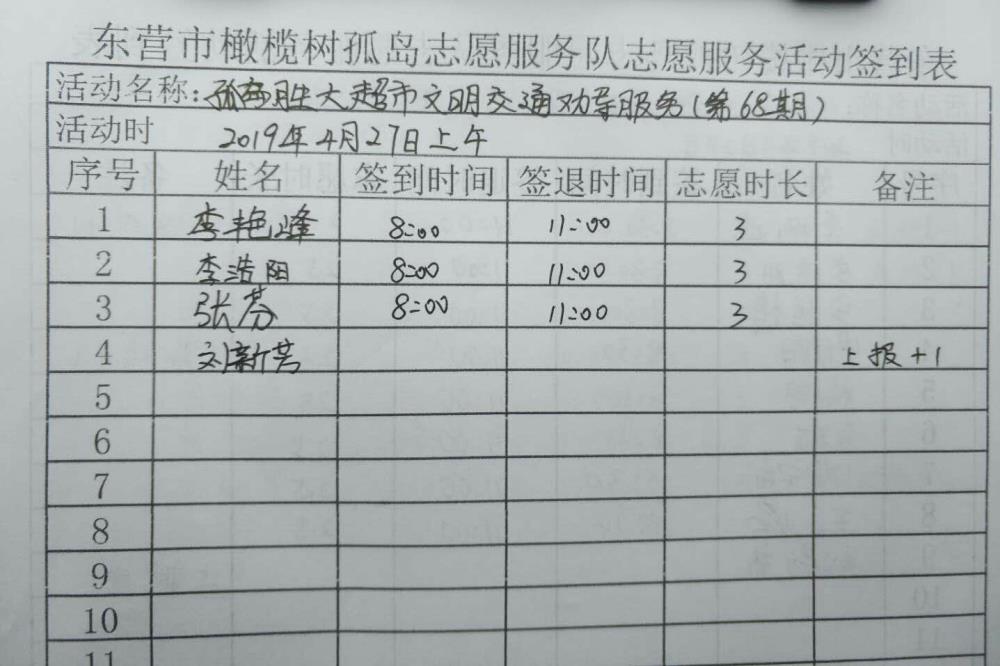 东营市橄榄树孤岛志愿服务队志愿服务活动签到表
活动名称:孤岛胜大超市文明交通劝导服务(第68期)
活动时 2019年4月27日上午
序号 姓名 签到时间 签退时间 志愿时长 备注
1 李艳峰 8:00 11:00 3
2 李浩阳 8:00 11:00 3
3 张芬 8:00 11:00 3
4 刘新芳 上报+1
5
6
7
8
9
10
11